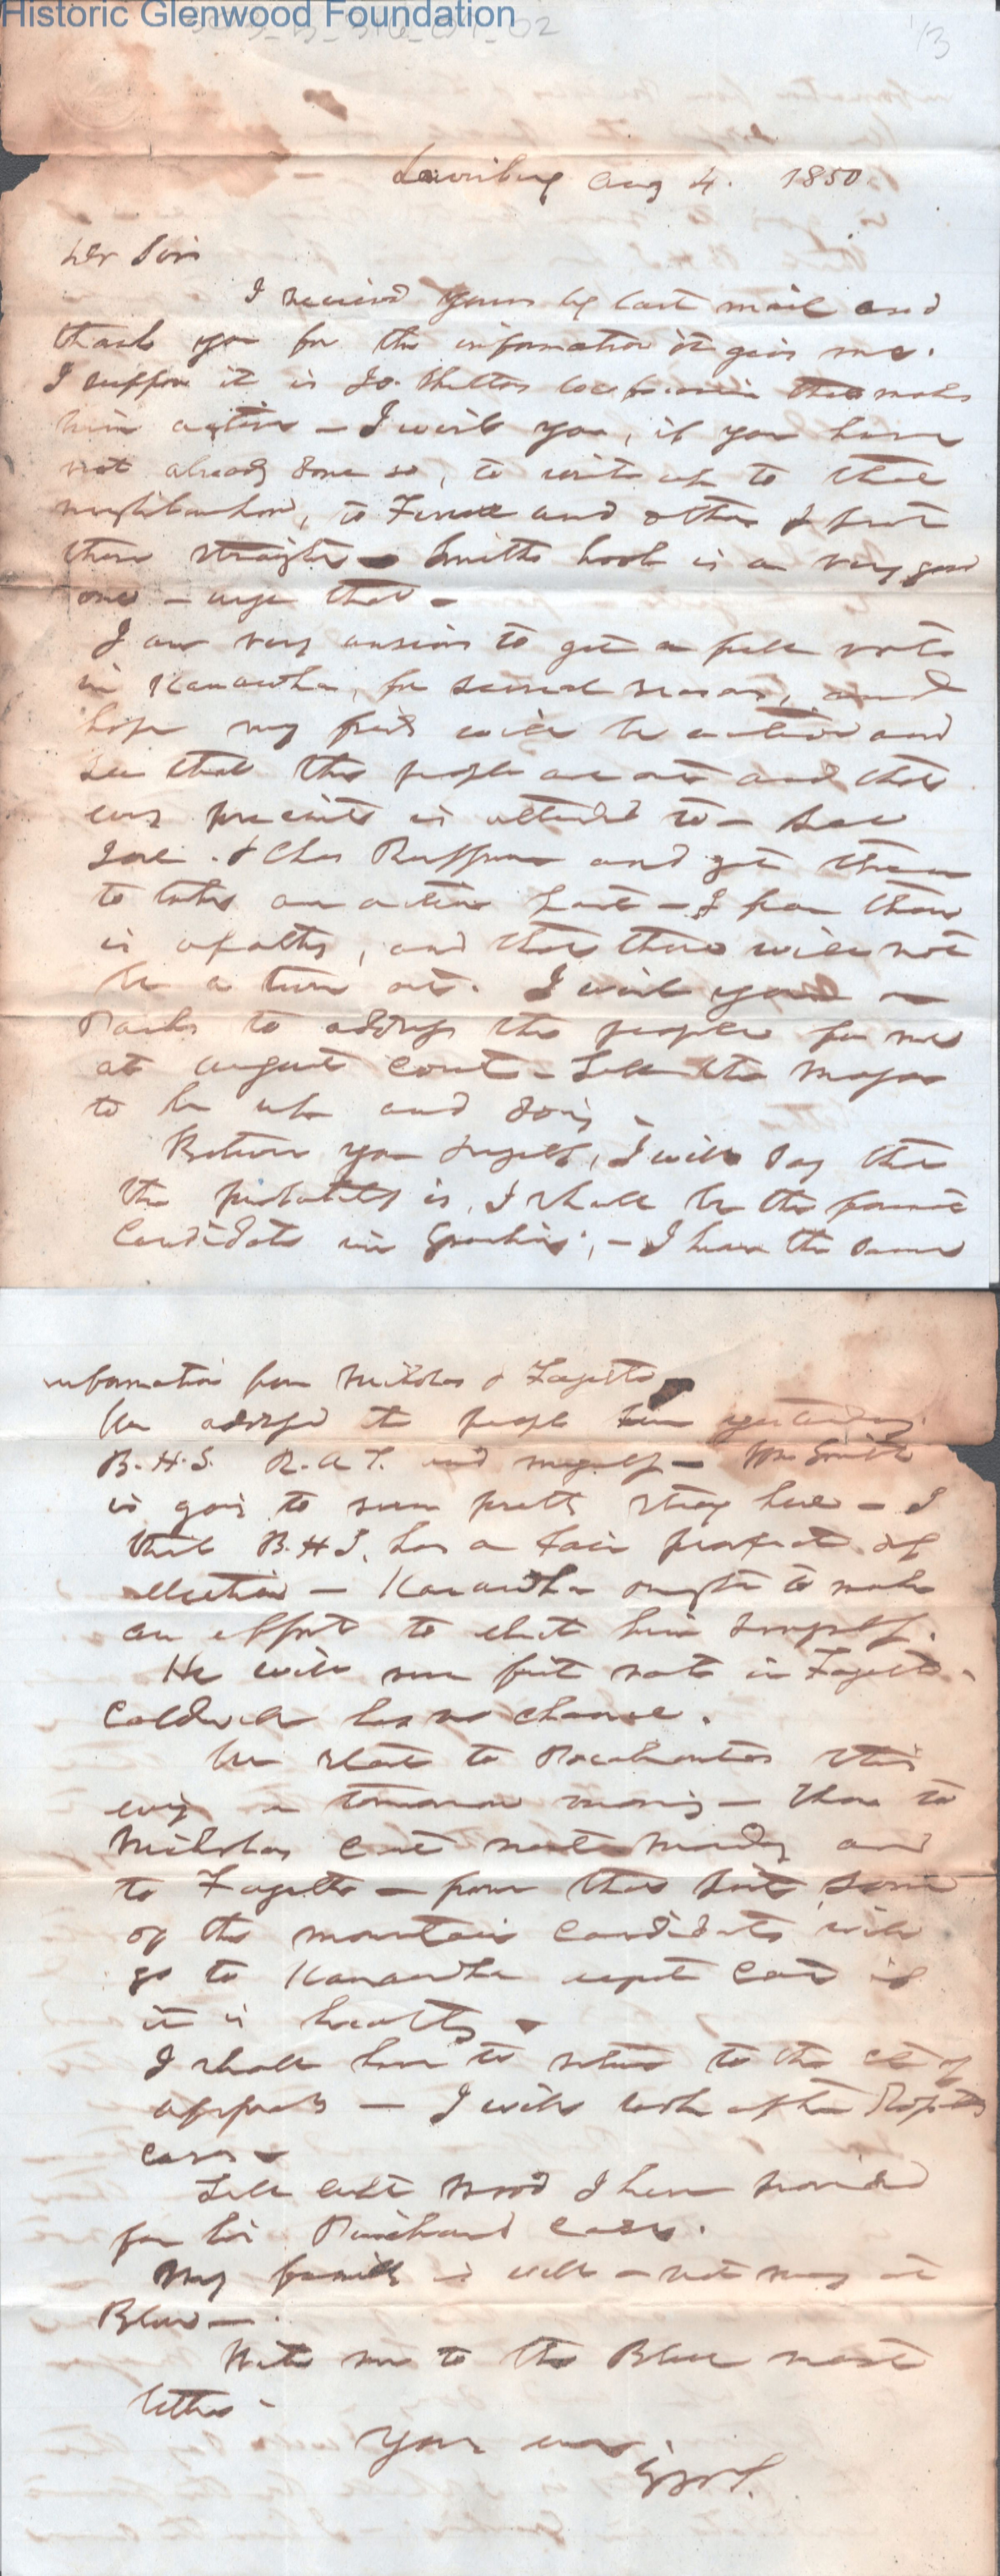 Historic Glenwood Foundation
Lewisburg Aug 4. 1850.
Dr Sir
I received yours by last mail and
thank you for the information it gives me.
I suppose it is Jo. Shelton that makes
him active – I wish you, if you have
not already done so, to write up to that
neighborhood, to and others & put
them straight – Smith's book is a very good
one – urge that –
I am very anxious to get a full vote
in Kanawha, for several reasons, and
hope my frds will be active and
see that the people are out and that
every precinct is attended to – See
Joel & Chas Ruffner and get them
to take an active part – I fear there
is apathy, and that there will not
be a turn out. I wish you or
Parks to address the people for me
at August Court – Tell the Major
to be up and doing –
Between you & myself, I will say that
the probability is, I shall be the favorite
Candidate in Greenbrier, – I have the same
information from Nicholas & Fayette
We addressed the people here yesterday.
B.H.S. R.A.T. and myself – Wm Smith
is going to run pretty strong here – I
think B.H.S. has a fair prospect of
election – Kanawha ought to make
an effort to elect him & myself.
He will run first rate in Fayette –
Caldwell has no chance.
We start to Pocahontas this
evg or tomorrow morning – then to
Nicholas Court next Monday and
to Fayette – from there some
of the mountain Candidates will
go to Kanawha august Court if
it is healthy –
I shall have to return to the Ct of
appeals – I will look after
cases –
Tell Capt Wood I have provided
for his cases.
My family is well – not many at
Blue –.
Write me to the Blue next
letter –
Your
GWS.